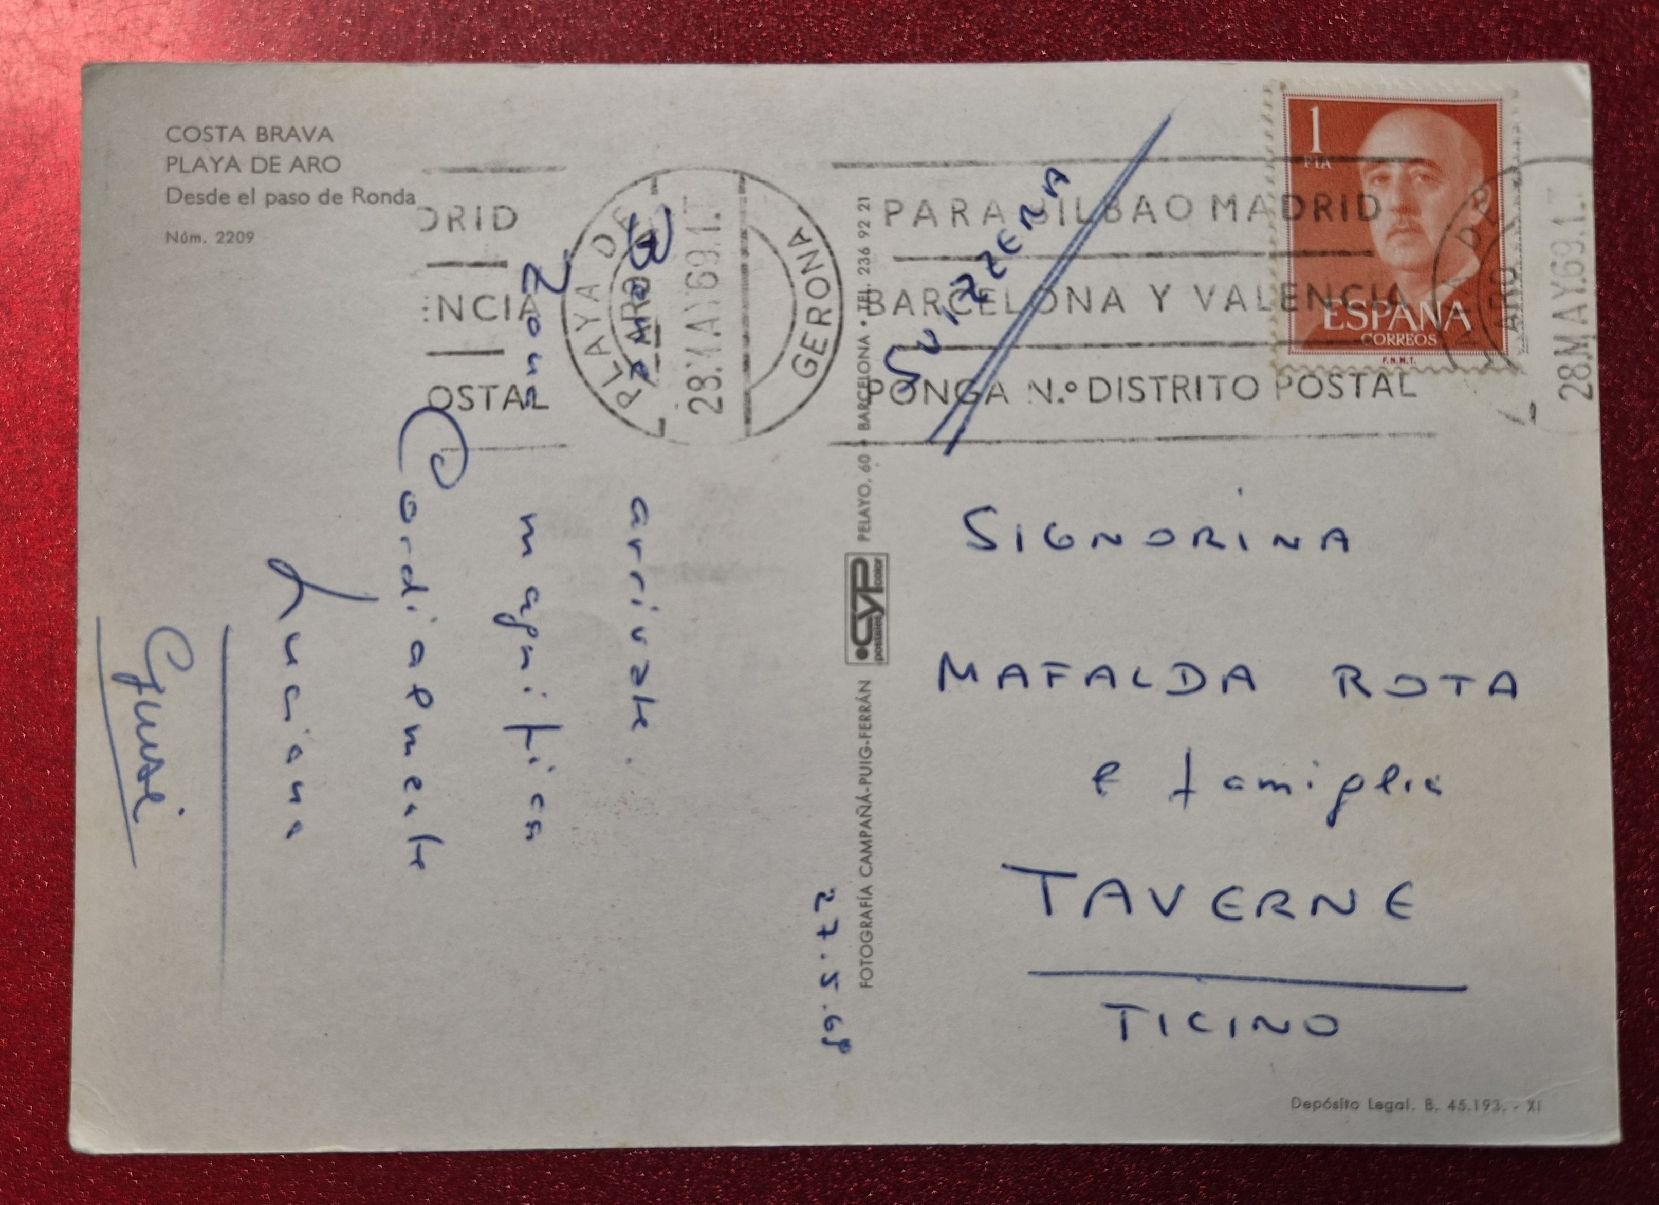 COSTA BRAVA
PLAYA DE ARO
Desde el paso de Ronda
Núm. 2209
DRID
ENCIA
OSTAL
PLAYA DE
ARO
28.MAY.69.1.T
GERONA
PARA BILBAO MADRID
BARCELONA Y VALENCIA
PONGA N.º DISTRITO POSTAL
1
PTA
ESPAÑA
CORREOS
F.N.M.T.
ARO
28.MAY.69.1.T
27.5.69
Bene arrivate.
Zona magnifica
Cordialmente
Luciana
Giusé
FOTOGRAFÍA CAMPAÑÁ-PUIG-FERRÁN
CYP
postales color
PELAYO, 60 • BARCELONA • TEL. 236 92 21
SVIZZERA
SIGNORINA
MAFALDA ROTA
e famiglia
TAVERNE
TICINO
Depósito Legal. B. 45.193. - XI